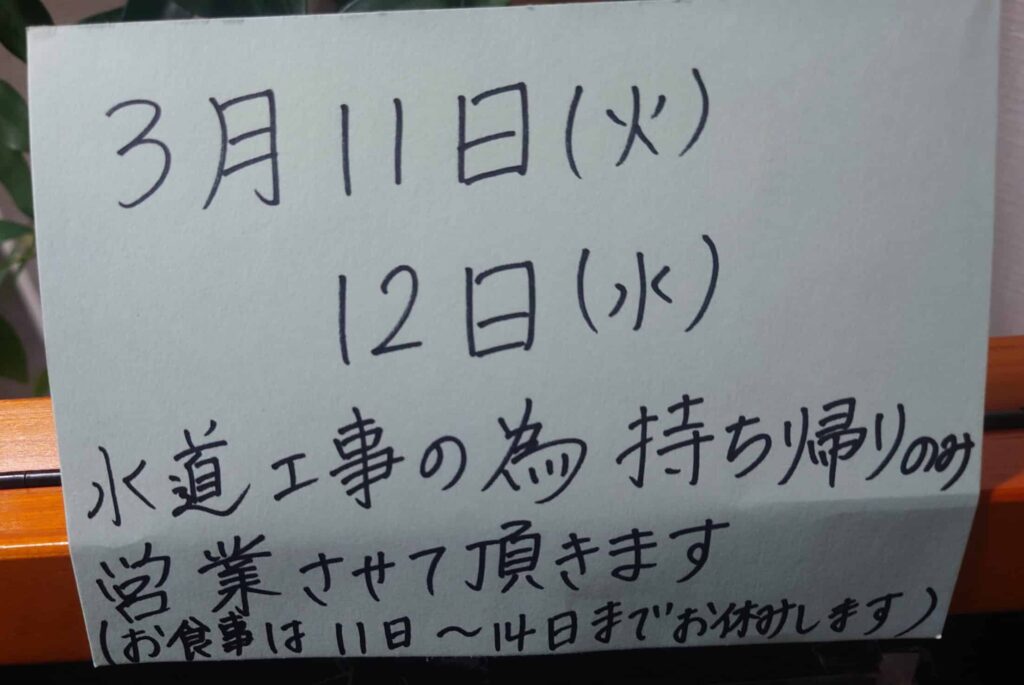 3月11日(火)
12日(水)
水道工事の為 持ち帰りのみ
営業させて頂きます
(お食事は11日〜14日までお休みします)